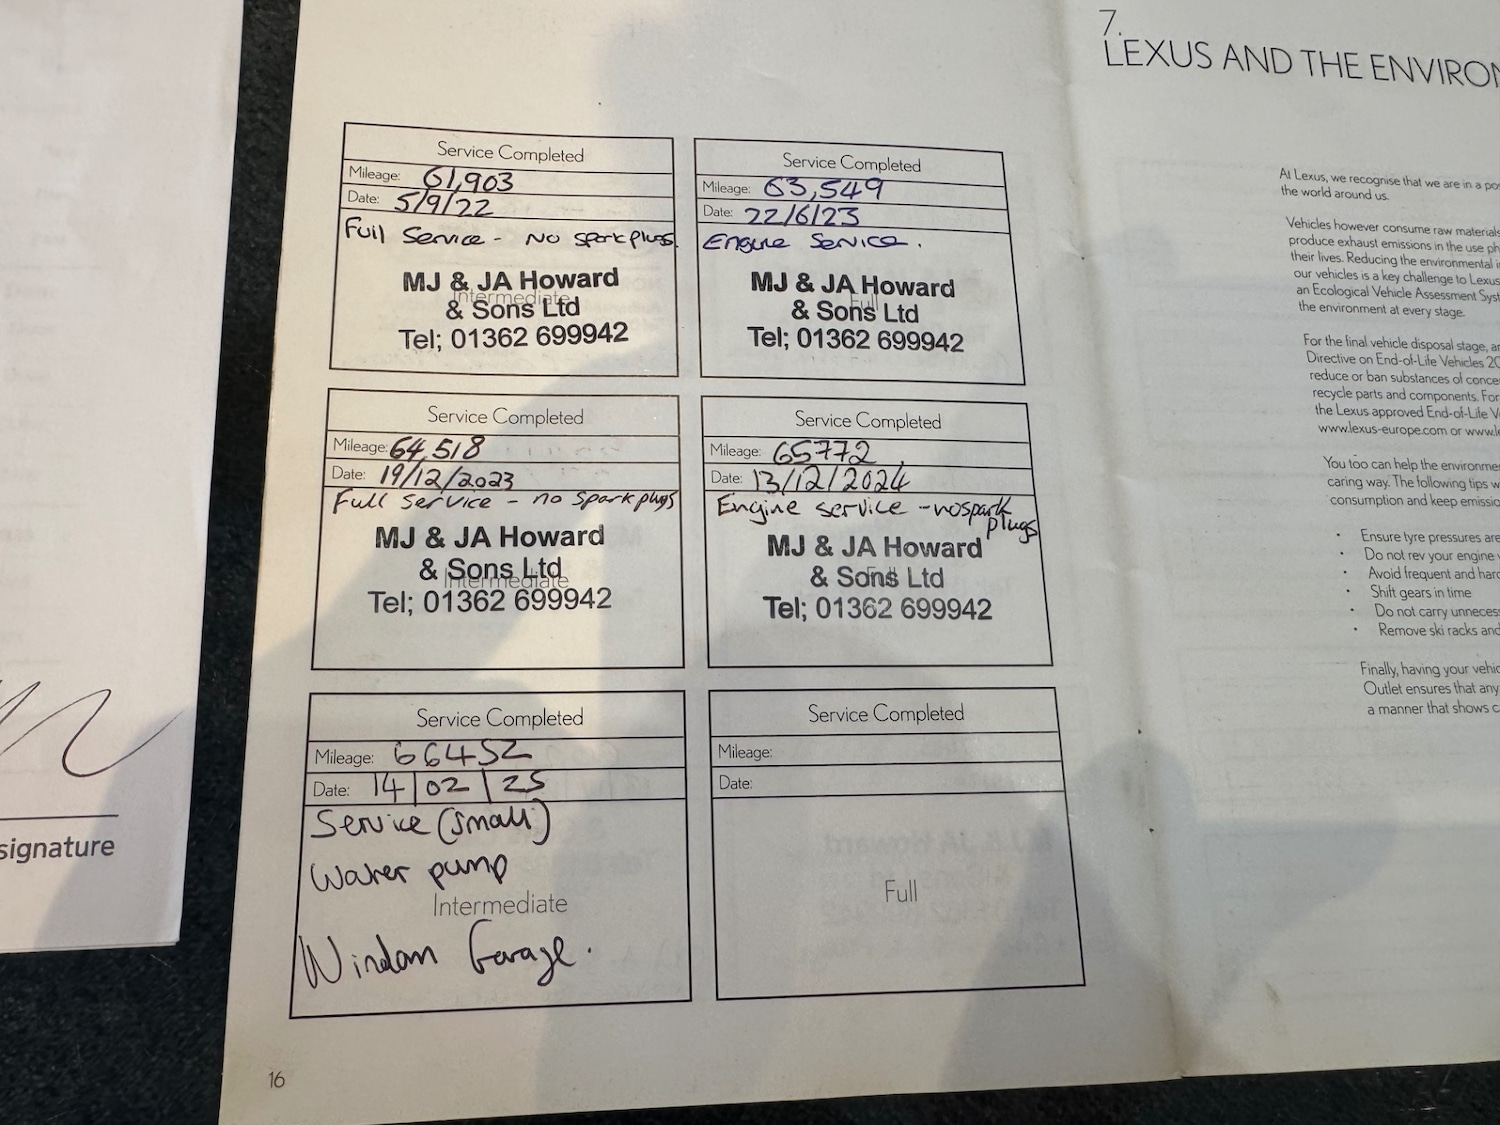 signature
Service Completed
Mileage: 61,903
Date: 5/9/22
Full Service - No spark plugs
MJ & JA Howard
Intermediate
& Sons Ltd
Tel; 01362 699942
Service Completed
Mileage: 63,549
Date: 22/6/23
Engine Service.
MJ & JA Howard
Full
& Sons Ltd
Tel; 01362 699942
Service Completed
Mileage: 64,518
Date: 19/12/2023
Full service - no spark plugs
MJ & JA Howard
& Sons Ltd
Intermediate
Tel; 01362 699942
Service Completed
Mileage: 65772
Date: 13/12/2024
Engine service - no spark
plugs
MJ & JA Howard
& Sons Ltd
Full
Tel; 01362 699942
Service Completed
Mileage: 66452
Date: 14/02/25
Service (small)
Water pump
Intermediate
Windam Garage.
Service Completed
Mileage:
Date:
Full
16
7.
LEXUS AND THE ENVIRON
At Lexus, we recognise that we are in a po
the world around us.
Vehicles however consume raw materials
produce exhaust emissions in the use ph
their lives. Reducing the environmental i
our vehicles is a key challenge to Lexus
an Ecological Vehicle Assessment Syst
the environment at every stage.
For the final vehicle disposal stage, a
Directive on End-of-Life Vehicles 20
reduce or ban substances of conce
recycle parts and components. For
the Lexus approved End-of-Life V
www.lexus-europe.com or www.le
You too can help the environme
caring way. The following tips w
consumption and keep emissio
• Ensure tyre pressures are
• Do not rev your engine
• Avoid frequent and hard
• Shift gears in time
• Do not carry unneces
• Remove ski racks and
Finally, having your vehic
Outlet ensures that any
a manner that shows c